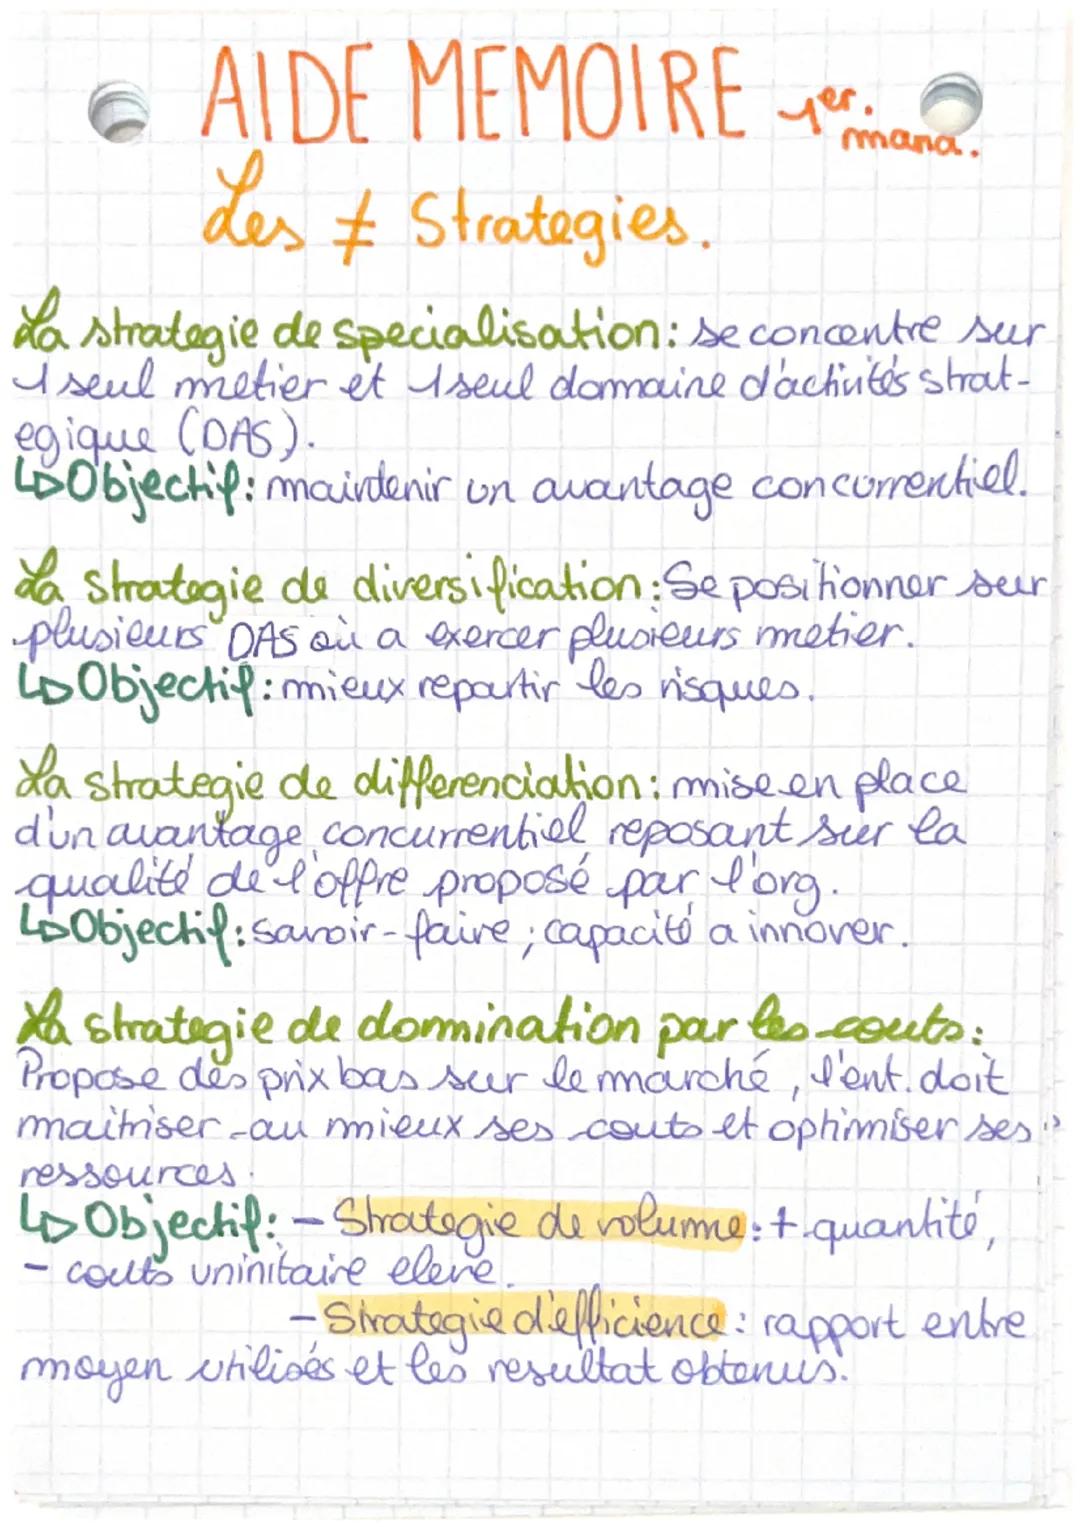 AIDE MEMOIRE 1er. mana.
Les ≠ Strategies.
La strategie de specialisation: se concentre sur
1 seul metier et 1 seul domaine d'activités strat-
egique (DAS).
↳Objectif: maintenir un avantage concurrentiel.
La strategie de diversification: Se positionner sur
plusieurs DAS où a exercer plusieurs metier.
↳Objectif: mieux repartir les risques.
La strategie de differenciation: mise en place
d'un avantage concurrentiel reposant sur la
qualité de l'offre proposé par l'org.
↳Objectif: savoir-faire; capacité a innover.
La strategie de domination par les couts:
Propose des prix bas sur le marché, l'ent. doit
maitriser au mieux ses couts et optimiser ses
ressources.
↳Objectif: - Strategie de volume: + quantité,
- couts uninitaire eleve.
- Strategie d'efficience: rapport entre
moyen utilisés et les resultat obtenus.